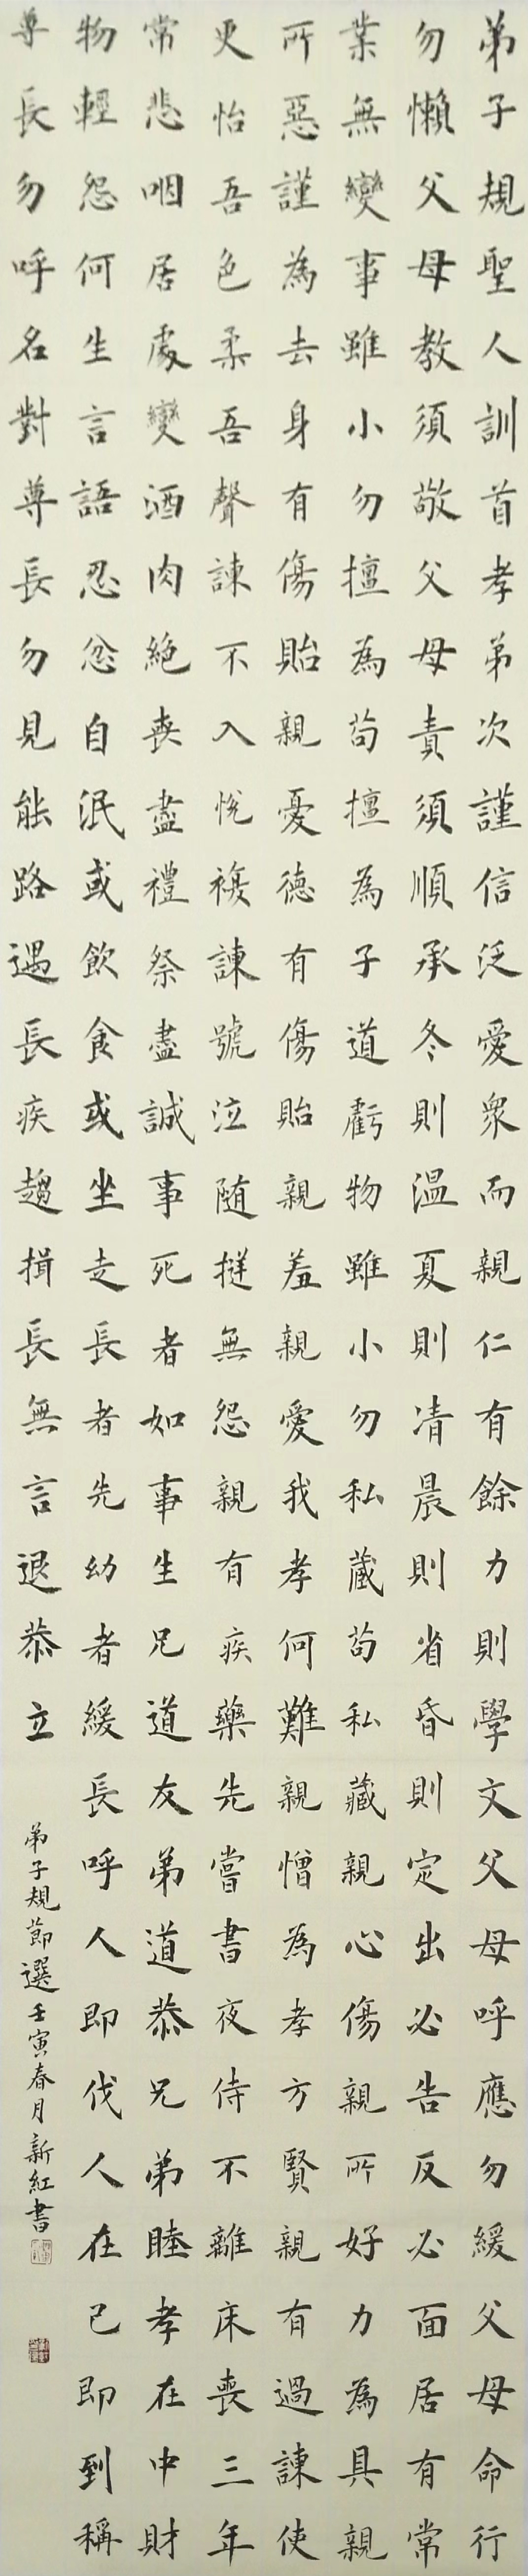 弟子規聖人訓首孝弟次謹信泛愛衆而親仁有餘力則學文父母呼應勿緩父母命行
勿懶父母教須敬父母責須順承冬則温夏則凊晨則省昏則定出必告反必面居有常
業無變事雖小勿擅為苟擅為子道虧物雖小勿私藏苟私藏親心傷親所好力為具親
所惡謹為去身有傷貽親憂德有傷貽親羞親愛我孝何難親憎為孝方賢親有過諫使
更怡吾色柔吾聲諫不入悅複諫號泣随撻無怨親有疾藥先嘗書夜侍不離床喪三年
常悲咽居處變酒肉絕喪盡禮祭盡誠事死者如事生兄道友弟道恭兄弟睦孝在中財
物輕怨何生言語忍忿自泯或飲食或坐走長者先幼者緩長呼人即伐人在己即到稱
尊長勿呼名對尊長勿見能路遇長疾趨揖長無言退恭立
弟子規節選壬寅春月新紅書